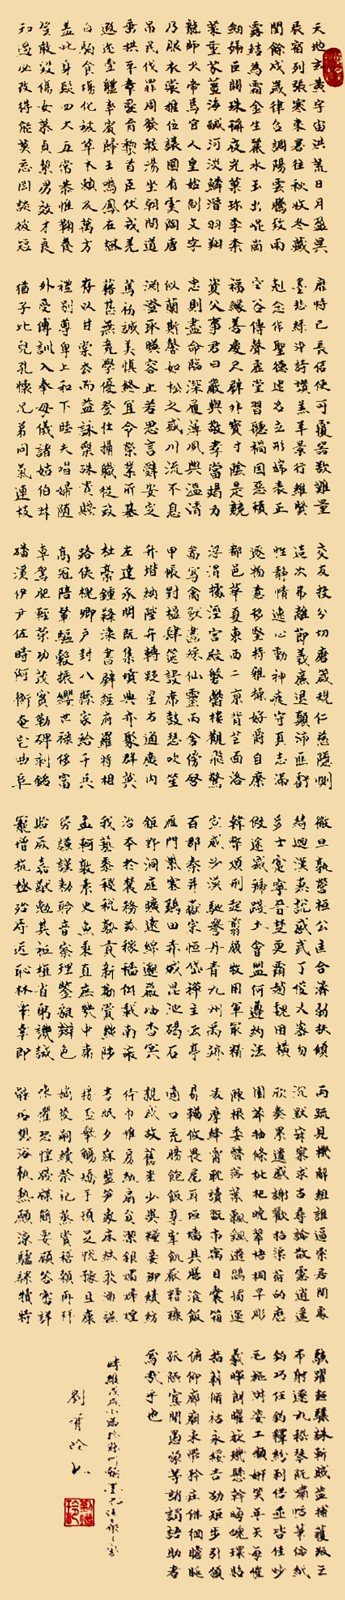 天地玄黃宇宙洪荒日月盈昃
辰宿列張寒來暑往秋收冬藏
閏餘成歲律呂調陽雲騰致雨
露結為霜金生麗水玉出崑崗
劍號巨闕珠稱夜光菓珍李柰
菜重芥薑海鹹河淡鱗潛羽翔
龍師火帝鳥官人皇始制文字
乃服衣裳推位讓國有虞陶唐
弔民伐罪周發殷湯坐朝問道
垂拱平章愛育黎首臣伏戎羌
遐邇壹體率賓歸王鳴鳳在樹
白駒食場化被草木賴及萬方
蓋此身髮四大五常恭惟鞠養
豈敢毀傷女慕貞絜男效才良
知過必改得能莫忘罔談彼短
靡恃己長信使可覆器欲難量
墨悲絲染詩讚羔羊景行維賢
剋念作聖德建名立形端表正
空谷傳聲虛堂習聽禍因惡積
福緣善慶尺璧非寶寸陰是競
資父事君曰嚴與敬孝當竭力
忠則盡命臨深履薄夙興溫凊
似蘭斯馨如松之盛川流不息
淵澄取暎容止若思言辭安定
篤初誠美慎終宜令榮業所基
籍甚無竟學優登仕攝職從政
存以甘棠去而益詠樂殊貴賤
禮別尊卑上和下睦夫唱婦隨
外受傅訓入奉母儀諸姑伯叔
猶子比兒孔懷兄弟同氣連枝
交友投分切磨箴規仁慈隱惻
造次弗離節義廉退顛沛匪虧
性靜情逸心動神疲守真志滿
逐物意移堅持雅操好爵自縻
都邑華夏東西二京背芒面洛
浮渭據涇宮殿盤鬱樓觀飛驚
圖寫禽獸畫綵仙靈丙舍傍啓
甲帳對楹肆筵設席鼓瑟吹笙
升階納陛弁轉疑星右通廣內
左達承明既集墳典亦聚群英
杜稾鍾隸漆書壁經府羅將相
路俠槐卿戶封八縣家給千兵
高冠陪輦驅轂振纓世祿侈富
車駕肥輕策功茂實勒碑刻銘
磻溪伊尹佐時阿衡奄宅曲阜
微旦孰營桓公匡合濟弱扶傾
綺迴漢惠說感武丁俊乂密勿
多士寔寧晉楚更霸趙魏困橫
假途滅虢踐土會盟何遵約法
韓弊煩刑起翦頗牧用軍最精
宣威沙漠馳譽丹青九州禹跡
百郡秦并嶽宗恒岱禪主云亭
雁門紫塞雞田赤城昆池碣石
鉅野洞庭曠遠綿邈巖岫杳冥
治本於農務茲稼穡俶載南畝
我藝黍稷稅熟貢新勸賞黜陟
孟軻敦素史魚秉直庶幾中庸
勞謙謹敕聆音察理鑒貌辯色
貽厥嘉猷勉其祗植省躬譏誡
寵增抗極殆辱近恥林皋幸即
兩疏見機解組誰逼索居閒處
沉默寂寥求古尋論散慮逍遙
欣奏累遣慼謝歡招渠荷的歷
園莽抽條枇杷晚翠梧桐早彫
陳根委翳落葉飄颻遊鵾獨運
凌摩絳霄耽讀翫市寓目囊箱
易輶攸畏屬耳垣牆具膳湌飯
適口充腸飽飫烹宰飢厭糟糠
親戚故舊老少異糧妾御績紡
侍巾帷房紈扇員潔銀燭煒煌
晝眠夕寐藍筍象床絃歌酒讌
接盃舉觴矯手頓足悅豫且康
嫡後嗣續祭祀蒸嘗稽顙再拜
悚懼恐惶牋牒簡要顧答審詳
骸垢想浴執熱願涼驢騾犢特
駭躍超驤誅斬賊盜捕獲叛亡
布射遼丸嵇琴阮嘯恬筆倫紙
鈞巧任釣釋紛利俗並皆佳妙
毛施淑姿工顰妍笑年矢每催
羲暉朗曜璇璣懸斡晦魄環照
指薪修祜永綏吉劭矩步引領
俯仰廊廟束帶矜莊徘徊瞻眺
孤陋寡聞愚蒙等誚謂語助者
焉哉乎也